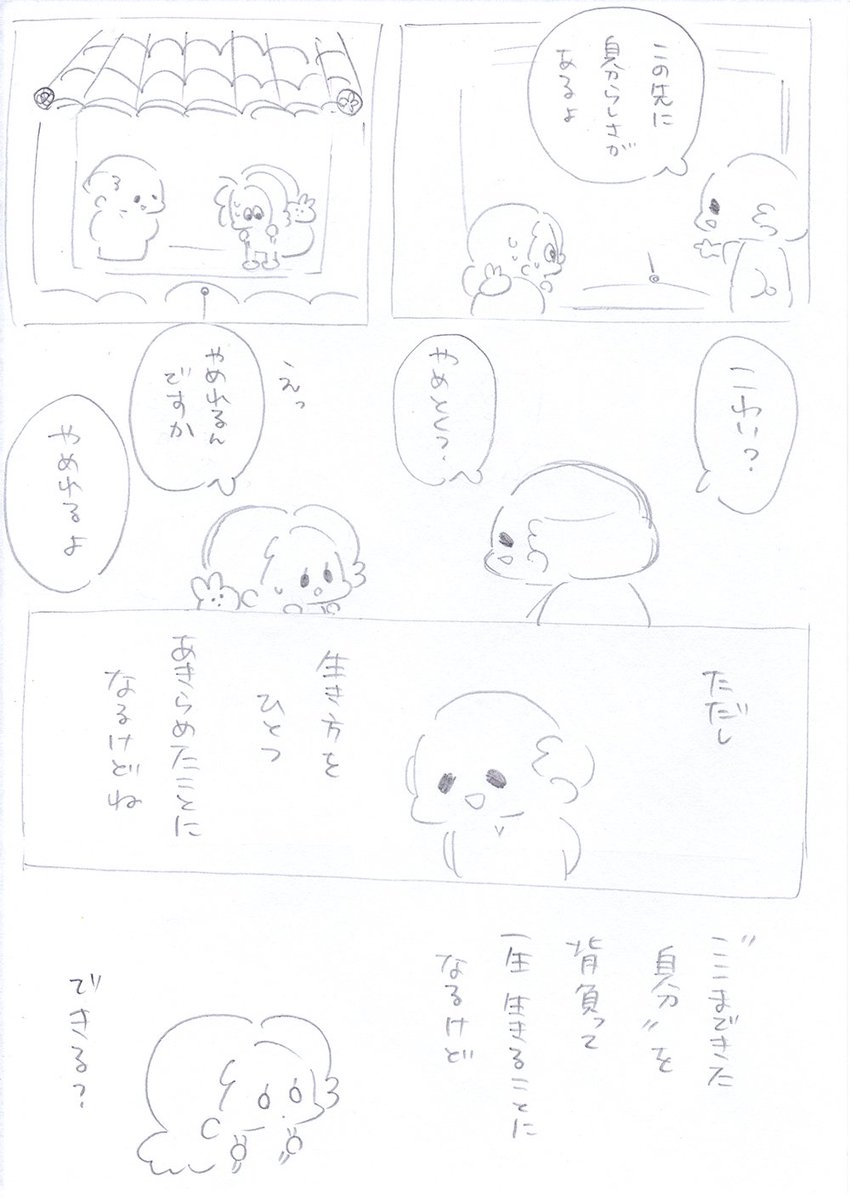 この先に
自分らしさが
あるよ
こわい?
やめとく?
えっ
やめれるん
ですか
やめれるよ
ただし
生き方を
ひとつ
あきらめたことに
なるけどね
"ここまできた
自分"を
背負って
一生 生きることに
なるけど
できる?